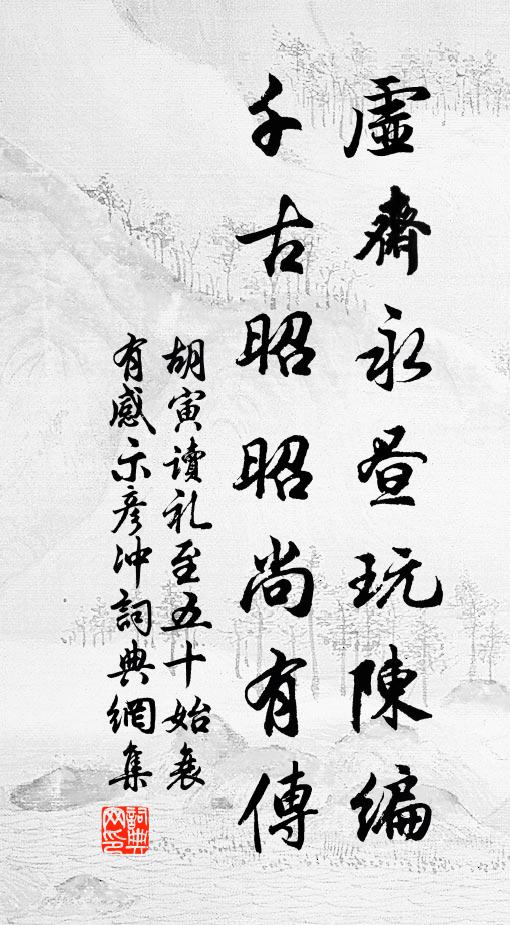 虛齋永昼玩陳編
千古昭昭尚有傳
胡寅讀礼至五十始衰
有感示彦冲詞典網集
詞典
网印